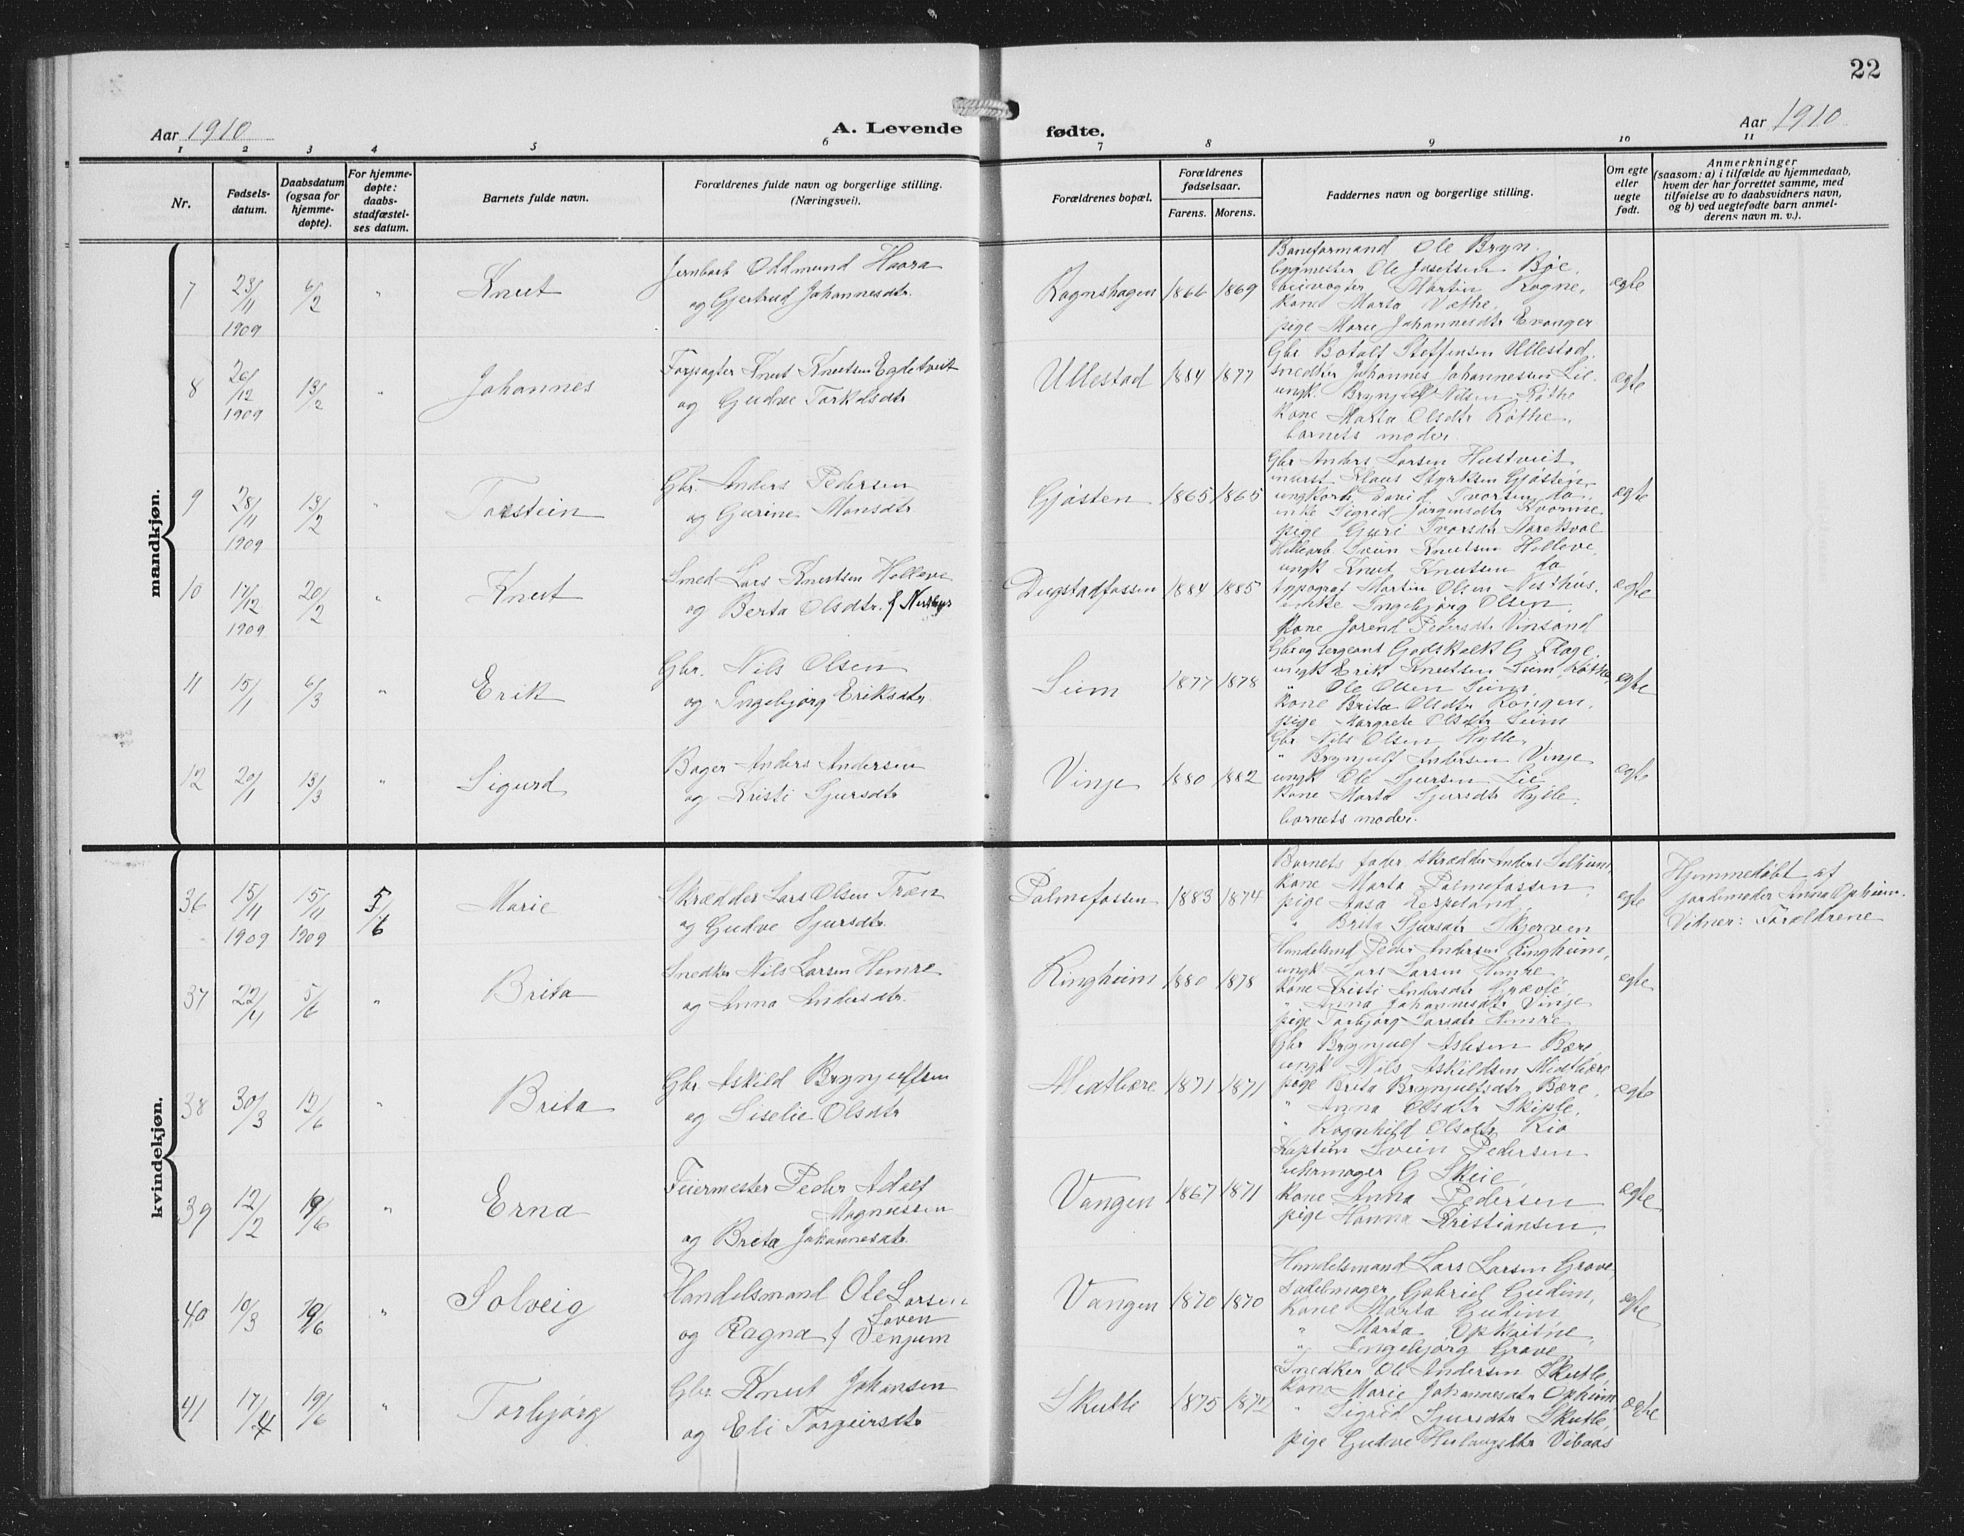 22
Aar 1910
A. Levende fødte.
Aar 1910
1 2 3 4 5 6 7 8 9 10 11
Nr.
Fødsels-
datum.
Daabsdatum
(ogsaa for
hjemme-
døpte).
For hjemme-
døpte:
daabs-
stadfæstel-
ses datum.
Barnets fulde navn.
Forældrenes fulde navn og borgerlige stilling.
(Næringsvei).
Forældrenes bopæl.
Forældrenes
fødselsaar.
Farens. Morens.
Faddernes navn og borgerlige stilling.
Om egte
eller
uegte
født.
Anmerkninger
(saasom: a) i tilfælde av hjemmedaab,
hvem der har forrettet samme, med
tilføielse av to daabsvidners navn,
og b) ved uegtefødte barn anmel-
derens navn m. v.).
mandkjøn.
7 23/11 1909 6/2 " Knut
Jernbarb Oddmund Haara
og Gjertrud Johannesdtr.
Rognshagen 1866 1869
Baneformand Ole Bryn.
Bygmester Ole Josefsen Bøe,
Martin Rogne,
Kone Marta Vethe,
pige Marie Johannesdtr Evanger
egte
8 26/12 1909 13/2 " Johannes
Forpagter Knut Knutsen Egdetveit
og Gudve Torkelsdtr
Ullestad 1884 1877
Gbr Botolf Steffensen Ullestad.
Snedker Johannes Johannessen Lie.
ungk. Brynjulf Nilsen Røthe
Kone Marta Olsdtr Røthe,
barnets moder.
egte
9 28/11 1909 13/2 " Torstein
Gbr. Anders Pedersen
og Gurine Monsdtr
Gjøsten 1865 1865
Gbr Anders Larsen Hustveit
Klaus Styrksen Gjøsten,
David Ivarsen do,
enke Sigrid Jørgensdtr Kvamme
pige Guri Ivarsdtr
egte
10 17/12 1909 20/2 " Knut
Smed Lars Knutsen Holleve
og Berta Olsdtr. f Nesthus
Dugstadfossen 1884 1885
Svein Knutsen Holleve,
ungk Knut Knutsen do
typograf Martin Olsen Nesthus,
enke Ingebjørg Olsen,
Kone Jorend Pedersdtr Vinsand
egte
11 15/1 6/3 " Erik
Gbr. Nils Olsen
og Ingebjørg Eriksdtr.
Seim 1877 1878
Gbr og sergeant Godskalk G Flage,
ungk Erik Knutsen Seim, Røthe,
" Ole Olsen Seim,
Kone Brita Olsdtr Rongen,
pige Margrete Olsdtr Seim
egte
12 20/1 13/3 " Sigurd
Bager Anders Andersen
og Kristi Sjursdtr
Vinje 1880 1882
Gbr Nils Olsen Hylle,
" Brynjulf Andersen Vinje
ungk Ole Sjursen Lie
Kone Marta Sjursdtr Hylle,
barnets moder.
egte
kvindekjøn.
36 15/11 1909 15/11 1909 5/6 Marie
Skrædder Lars Olsen Træn
og Gudve Sjursdtr.
Palmefossen 1883 1874
Barnets fader, skrædder Anders
Kone Marta Palmefossen,
pige Aasa Espeland,
" Brita Sjursdtr Skjerven
egte
Hjemmedøbt af
jordemoder Anna Opheim.
Vidner: Forældrene
37 22/4 5/6 " Brita
Snedker Nils Larsen Hemre
og Anna Andersdtr.
Ringheim 1880 1878
Handelsmd Peder Andersen Ringheim,
ungk Lars Larsen Hemre
Kone Kristi Andersdtr Grevle,
" Anna Johannesdtr Vinje
pige Torbjørg Larsdtr Hemre
egte
38 30/3 12/6 " Brita
Gbr Askild Brynjulfsen
og Liselie Olsdtr
Midtbære 1871 1871
Gbr Brynjulf Bære,
ungk Nils Askildsen Midtbære
pige Brita Brynjulfsdtr Bære,
" Anna Olsdtr Skiple,
" Ragnhild Olsdtr Rio
egte
39 12/2 19/6 " Erna
Feiermester Peder Adolf
Magnussen
og Brita Johannesdtr.
Vangen 1867 1871
Kaptein Svein Pedersen
urhmager G Skeie,
Kone Anna Pedersen
pige Hanna Kristiansen,
egte
40 10/3 19/6 " Solveig
Handelsmand Ole Larsen
Løven
og Ragna f Venjum
Vangen 1870 1870
Handelsmand Lars Larsen Grove,
Sadelmager Gabriel Gudim,
Kone Marta Gudim,
" Marta Opkvitne,
" Ingebjørg Grove
egte
41 17/4 19/6 " Torbjørg
Gbr Knut Johansen
og Eli Torgeirsdtr
Skutle 1875 1872
Snedker Ole Andersen Skutle,
Kone Marie Johannesdtr Opheim
" Sigrid Sjursdtr Skutle,
pige Gudve
egte